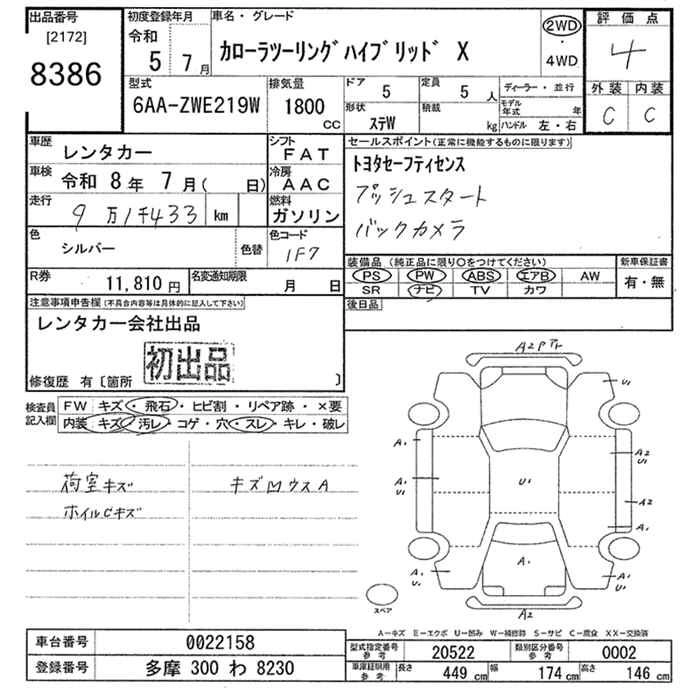 出品番号
[2172]
8386
初度登録年月
令和
5 7月
車名・グレード
カローラツーリングハイブリッド X
2WD
・
4WD
評価点
4
外装 内装
C C
型式
6AA-ZWE219W
排気量
1800
CC
ドア
5
定員
5 人
形状
ステW
積載
kg
ディーラー・並行
モデル年式 年
ハンドル 左・右
車歴
レンタカー
シフト
FAT
車検
令和 8年 7月( 日)
冷房
AAC
走行
9万1千433 km
燃料
ガソリン
色
シルバー
色替
色コード
1F7
R券
11,810円
名変通知期限
月 日
セールスポイント(正常に機能するものに限ります)
トヨタセーフティセンス
プッシュスタート
バックカメラ
装備品(純正品に限り〇をつけてください)
PS PW ABS エアB AW
SR ナビ TV カワ
新車保証書
有・無
後日品
注意事項申告欄(不具合内容等は具体的に記入して下さい)
レンタカー会社出品
初出品
修復歴 有〔箇所 〕
検査員記入欄
FW キズ・飛石・ヒビ割・リペア跡・×要
内装 キズ・汚レ・コゲ・穴・スレ・キレ・破レ
荷室キズ
ホイルCキズ
キズMウスA
A2Pアト
U1
A1
A2
U1
A1
U1
U1
A2
A1
A1
A1
U1
A1
U1
A2
スペア
A-キズ E-エクボ U-凹み W-補修跡 S-サビ C-腐食 XX-交換済
車台番号
0022158
登録番号
多摩 300 わ 8230
型式指定番号
参考
20522
類別区分番号
参考
0002
車庫証明用
参考
長さ 449 cm 幅 174 cm 高さ 146 cm